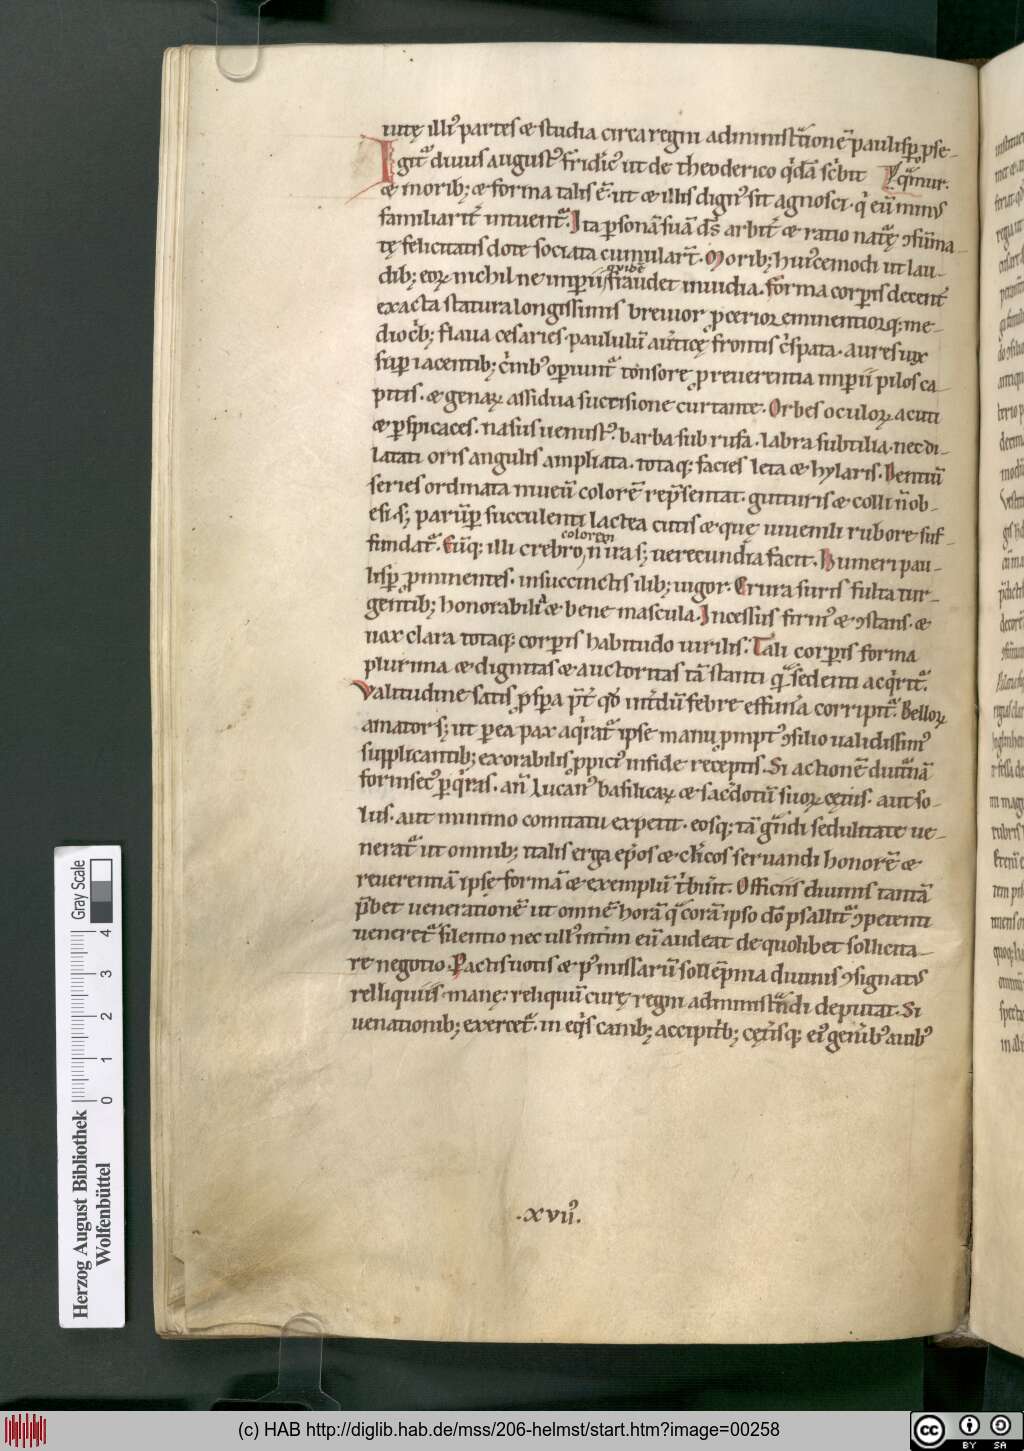 uitę illiꝰ partes & studia circa regni administͣtionē paulisꝑ ꝑse-
Igitᷣ diuus augustꝰ fridicꝰ ut de theoderico qͥdā sc̄bit qͣmur.
& morib; & forma talis ē. ut & illis dignꝰ sit agnosci. qͥ eū minus
familiarit̄ intuentᷣ. Ita ꝑsonā suā ds̄ arbit̄ & ratio natᷣę ꝯsūma-
tę felicitatis dote sociata cumulart̄. Morib; huiꝰcemodi ut lau-
dib; eoꝝ nichil ne imꝑii quidē fraudet inuidia. Forma corꝑis decent̄
exacta statura longissimis breuior ꝓcerior eminentiorq; me-
diocͥb; flaua cesaries. paululū aūticę frontis cͥspata. aures uix
suꝑiacentib; cͥnibꝰ oꝑiuntᷣ tonsore ꝓ reuerentia imꝑii pilos ca-
pitis. & genaꝝ assidua succisione curtante. Orbes oculoꝝ acuti
& ꝑspicaces. nasus uenustꝰ. barba sub rufa. labra subtilia. nec di-
latati oris angulis ampliata. totaq; facies leta & hylaris. Dentiū
series ordinata niueū colorē repͤsentat. gutturis & colli n̄ ob-
esi. s; parūꝑ succulenti lactea cutis & quę iuuenili rubore suf-
fundatᷣ. Eūq; illi crebro colorem n̄ ira s; uerecundia facit. Humeri pau-
lisꝑ ꝓminentes. insuccinctis ilib; uigor. Crura suris fulta tur-
gentib; honorabilia & bene mascula. Incessus firmꝰ & ꝯstans. &
uox clara totaq; corꝑis habitudo uirilis. Tali corꝑis forma
plurima & dignitas & auctoritas tā stanti qͣ sedenti acqͥritᷣ.
Valitudine satis ꝓsꝑa p̄t̄ qđ int̄dū febre effim̄a corripitᷣ. Belloꝝ
amator s; ut ꝑ ea pax aqͥratᷣ ipse manu ꝓmptꝰ ꝯsilio ualidissimꝰ
supplicantib; exorabilis ꝓpiciꝰ in fide receptis. Si actionē diutͥnā
forinsecꝰ ꝑqͥras. an̄ lucanꝰ basilicaꝝ & sac̄dotū suoꝝ cętus. aut so-
lus. aut minimo comitatu expetit. eosq; tā gͣndi sedulitate ue-
neratᷣ ut omnib; italis erga ep̄os & cl̄icos seruandi honorē &
reuerentiā ipse formā & exemplū tͥbūit. Officiis diuinis tantā
p̄bet uenerationē ut omnē horā qͣ corā ipso dō psallitᷣ ꝯpetenti
ueneretᷣ silentio nec ullꝰ intim eū audeat de quolibet sollicita-
re negotio. Pactis uotis & pꝰ missarū sollēpnia diuinis ꝯsignatꝰ
relliquiis. mane; reliquiū curę regni administͣndi deputat. Si
uenationib; exercetᷣ. in eqͥs canib; accipitͥb; cęt̄isq; eiꝰ gen̄ibꝰ auibꝰ
.xvii.
Herzog August Bibliothek
Wolfenbüttel
0 1 2 3 4
Gray Scale
(c) HAB http://diglib.hab.de/mss/206-helmst/start.htm?image=00258
cc BY SA